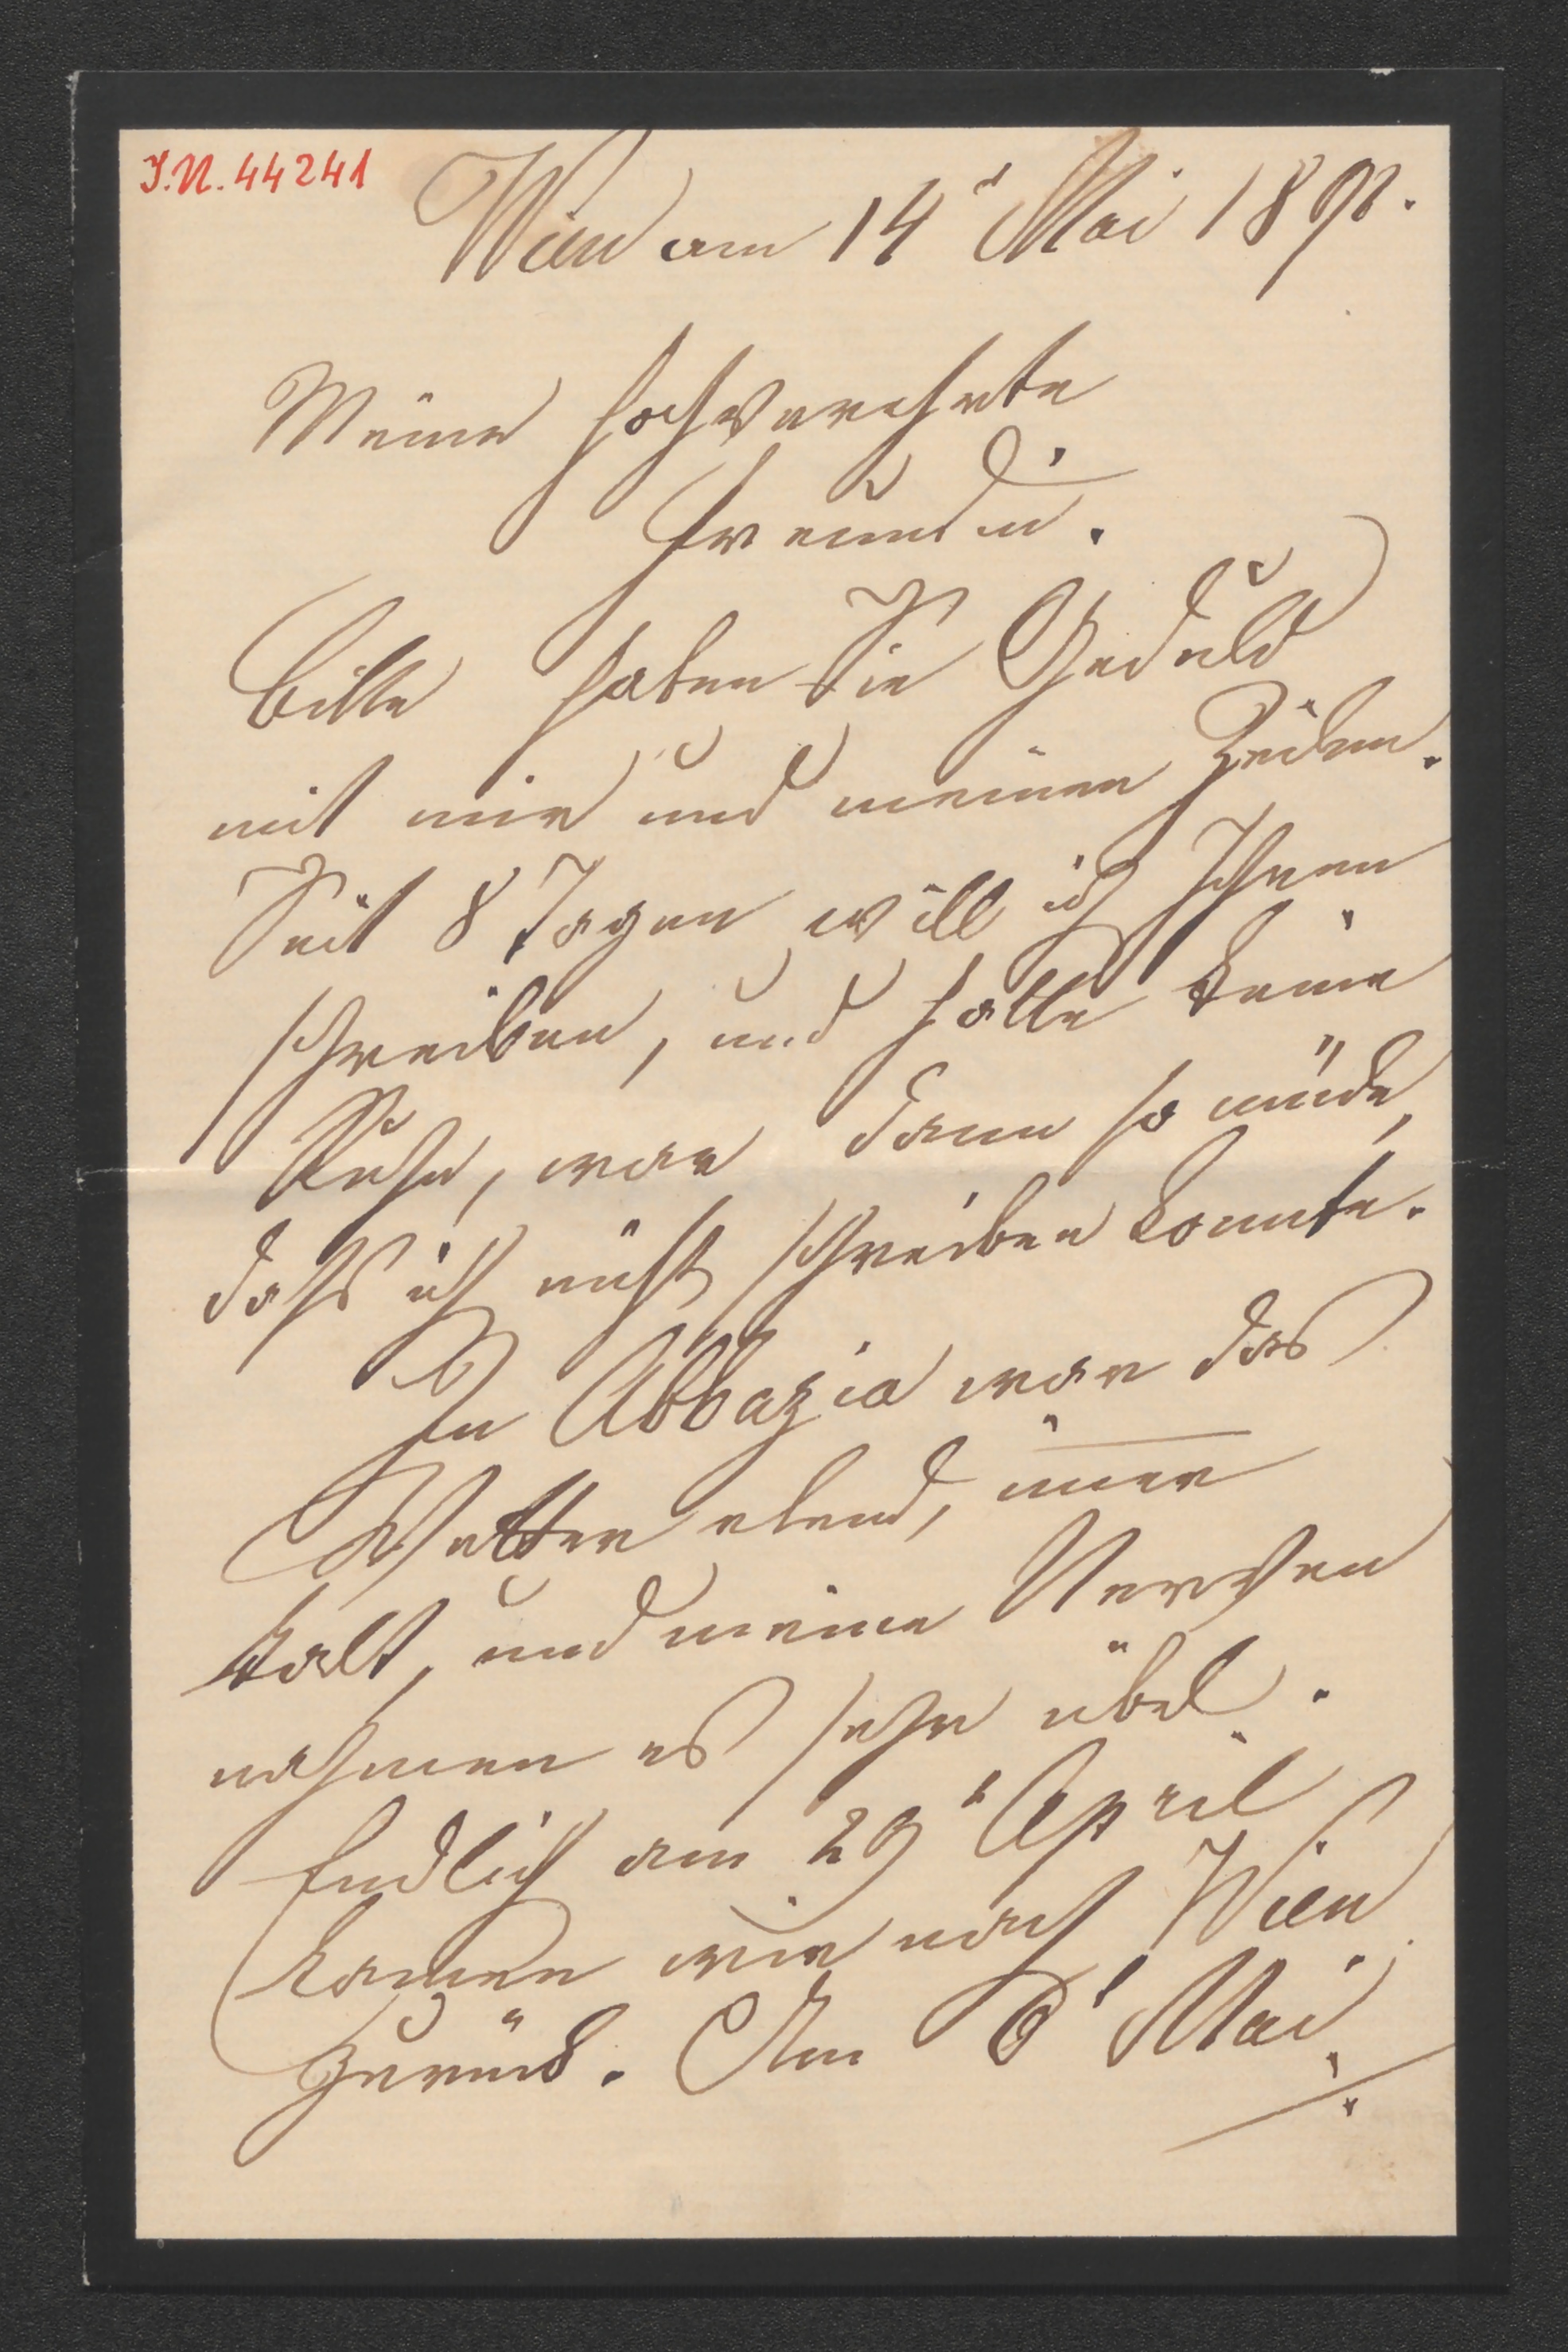 I.N. 44241
Wien am 14t Mai 189
Meine hochverehrte
Freundin.
Bitte haben Sie Geduld
mit mir und meinen Zeilen.
Seit 8 Tagen will ich Ihnen
schreiben, und hatte keine
Ruhe, war dann so müde,
dass ich nicht schreiben konnte.
In Abbazia war das
Wetter elend, im̅er
kalt, und meine Nerven
nahmen es sehr übel.
Endlich am 29t April
kamen wir nach Wien
zurück. Am 6t Mai